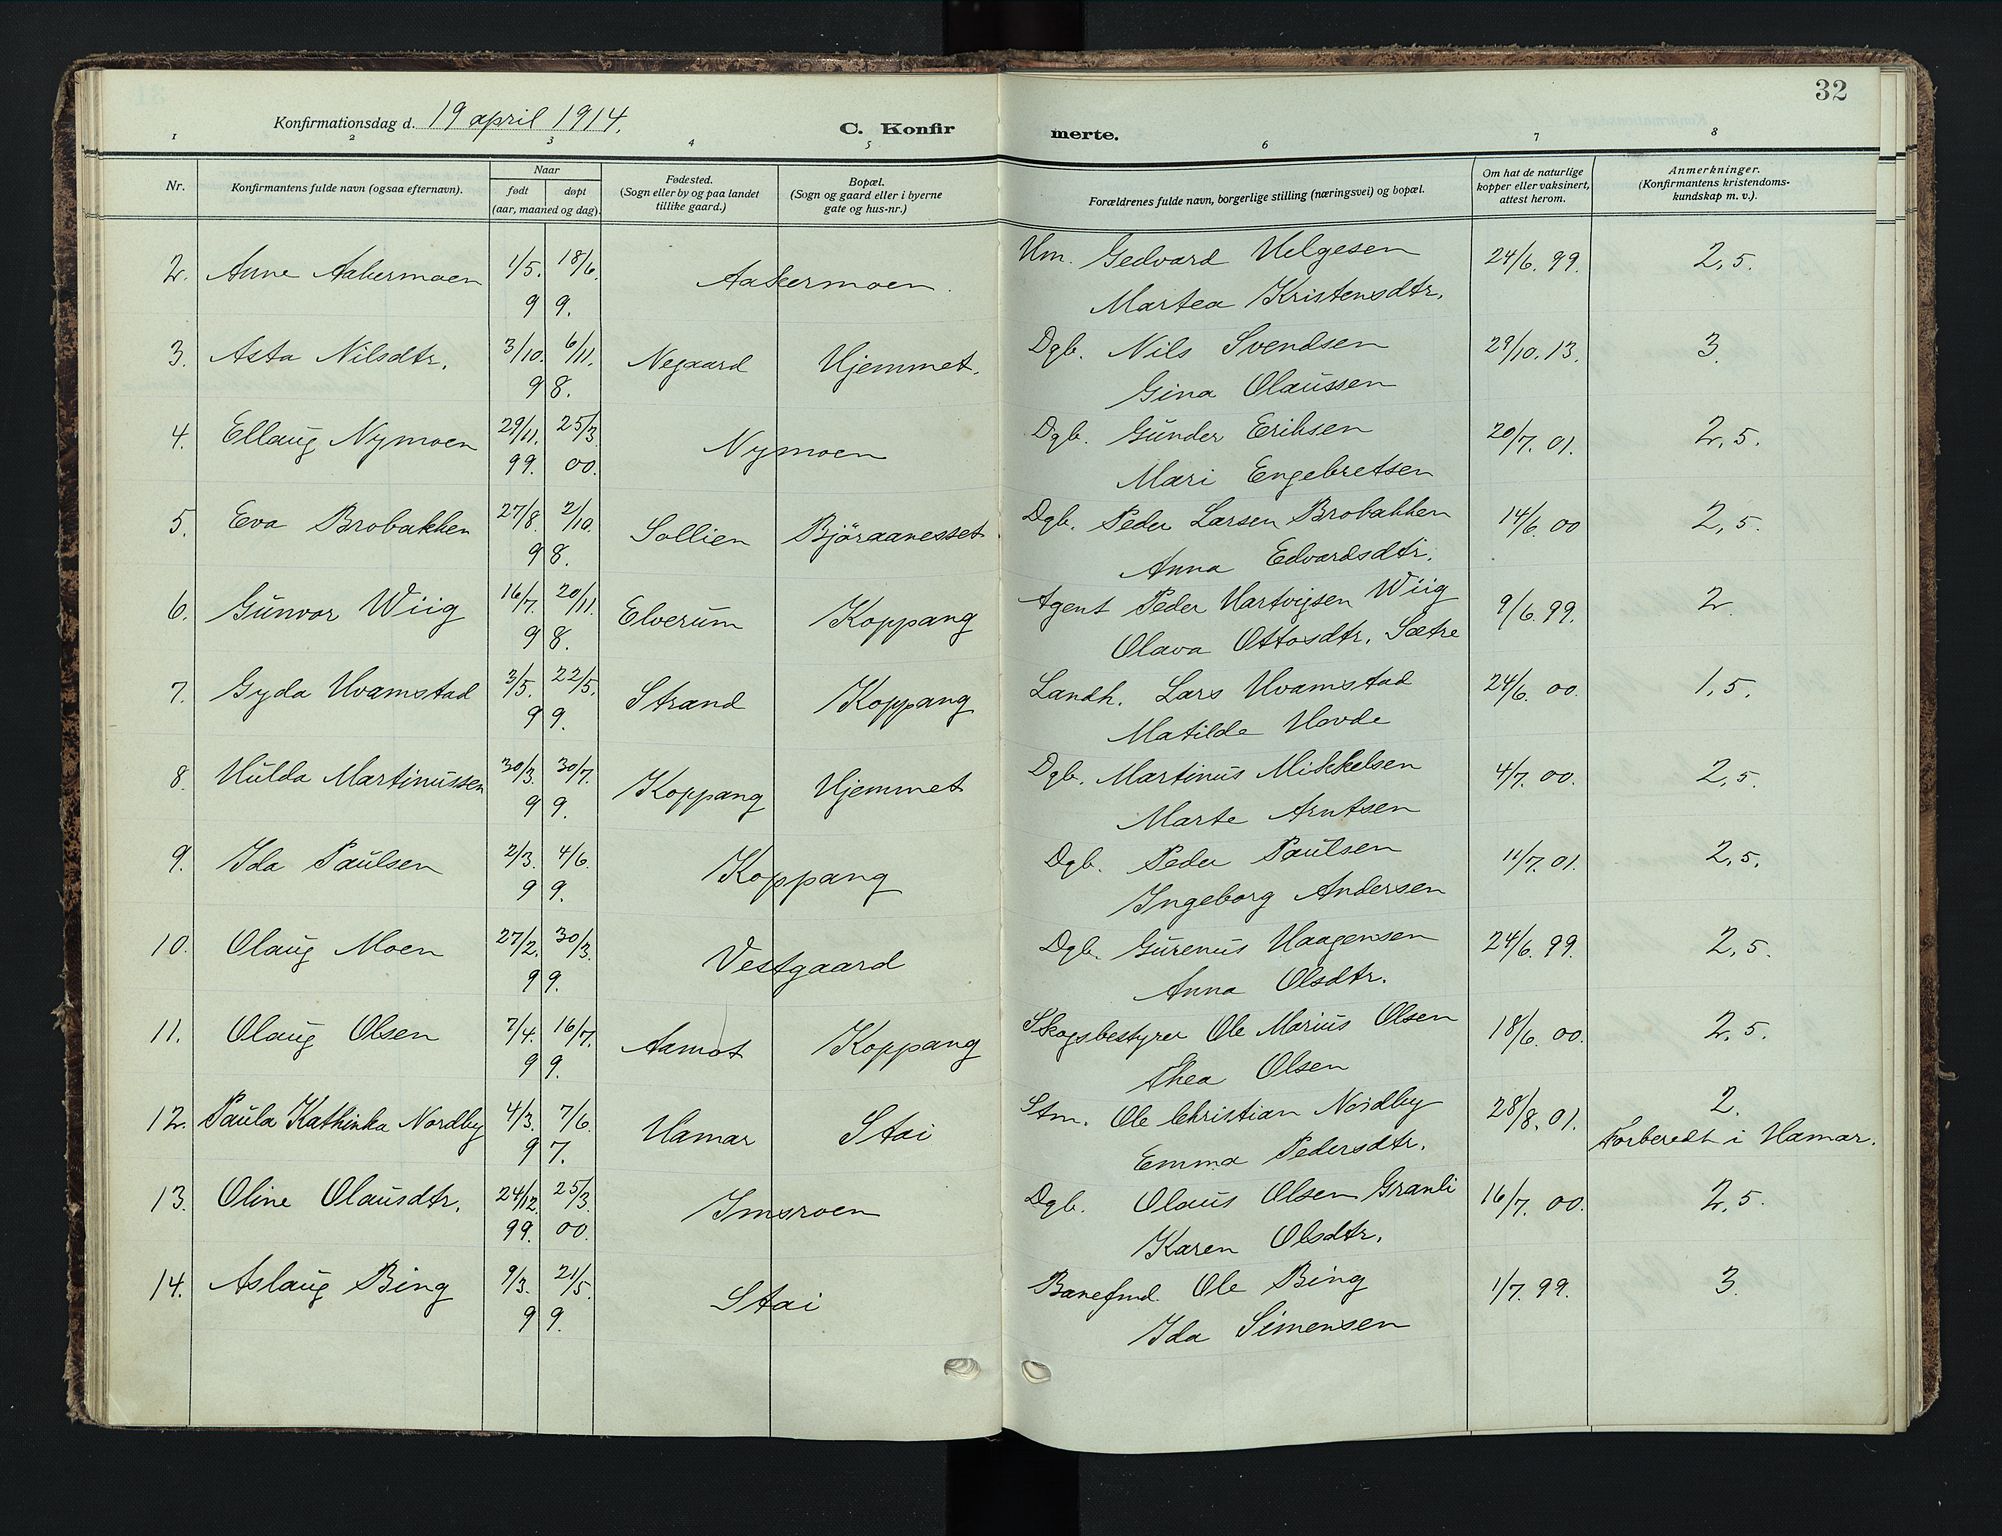 32
Konfirmationsdag d. 19 april 1914.
C. Konfir merte.
1 2 3 4 5 6 7 8
Nr. Konfirmantens fulde navn (ogsaa efternavn). Naar født døpt (aar, maaned og dag). Fødested. (Sogn eller by og paa landet tillike gaard.) Bopæl. (Sogn og gaard eller i byerne gate og hus-nr.) Forældrenes fulde navn, borgerlige stilling (næringsvei) og bopæl. Om hat de naturlige kopper eller vaksinert, attest herom. Anmerkninger. (Konfirmantens kristendomskundskap m. v.).
2. Anne Aakermoen 1/5. 18/6. Aakermoen. Hm. Gedvard Helgesen 24/6. 99. 2,5.
99. Martea Kristensdtr.
3. Asta Nilsdtr. 3/10. 6/11. Negaard Hjemmet. Dgb. Nils Svendsen 29/10. 13. 3.
98. Gina Olaussen
4. Ellaug Nymoen 29/11. 25/3 Nymoen Dgb. Gunder Eriksen 20/7. 01. 2,5.
99. 00. Mari Engebretsen
5. Eva Brobakken 27/8. 2/10. Sollien Björaanesset. Dgb. Peder Larsen Brobakken 14/6. 00 2,5.
98. Anna Edvardsdtr.
6. Gunvor Wiig 16/7. 20/11. Elverum Koppang Agent Peder Hartvigsen Wiig 9/6. 99. 2.
98. Olava Ottosdtr. Sætre
7. Gyda Hvamstad 3/5. 22/5. Strand Koppang Landh. Lars Hvamstad 24/6. 00. 1,5.
99. Matilde Hovde
8. Hulda Martinussen 30/3. 30/7. Koppang Hjemmet Dgb. Martinus Mikkelsen 4/7. 00. 2,5.
99. Marte Arntsen
9. Ida Paulsen 2/3. 4/6. Koppang Dgb. Peder Paulsen 11/7. 01. 2,5.
99. Ingeborg Andersen
10. Olaug Moen 27/2. 30/3. Vestgaard Dgb. Gurenus Haagensen 24/6. 99. 2,5.
99. Anna Olsdtr.
11. Olaug Olsen 7/4. 16/7. Aamot Koppang Skogsbestyrer Ole Marius Olsen 18/6. 00. 2,5.
99. Thea Olsen
12. Paula Kathinka Nordby 4/3. 7/6. Hamar Stai Stm. Ole Christian Nordby 28/8. 01. 2.
97. Emma Pedersdtr. Forberedt i Hamar.
13. Oline Olausdtr. 24/12. 25/3. Imsroen Dgb. Olaus Olsen Granli 16/7. 00. 2,5.
99. 00. Karen Olsdtr.
14. Aslaug Bing 9/3. 21/5. Stai Banefmd. Ole Bing 1/7. 99. 3.
99. Ida Simensen